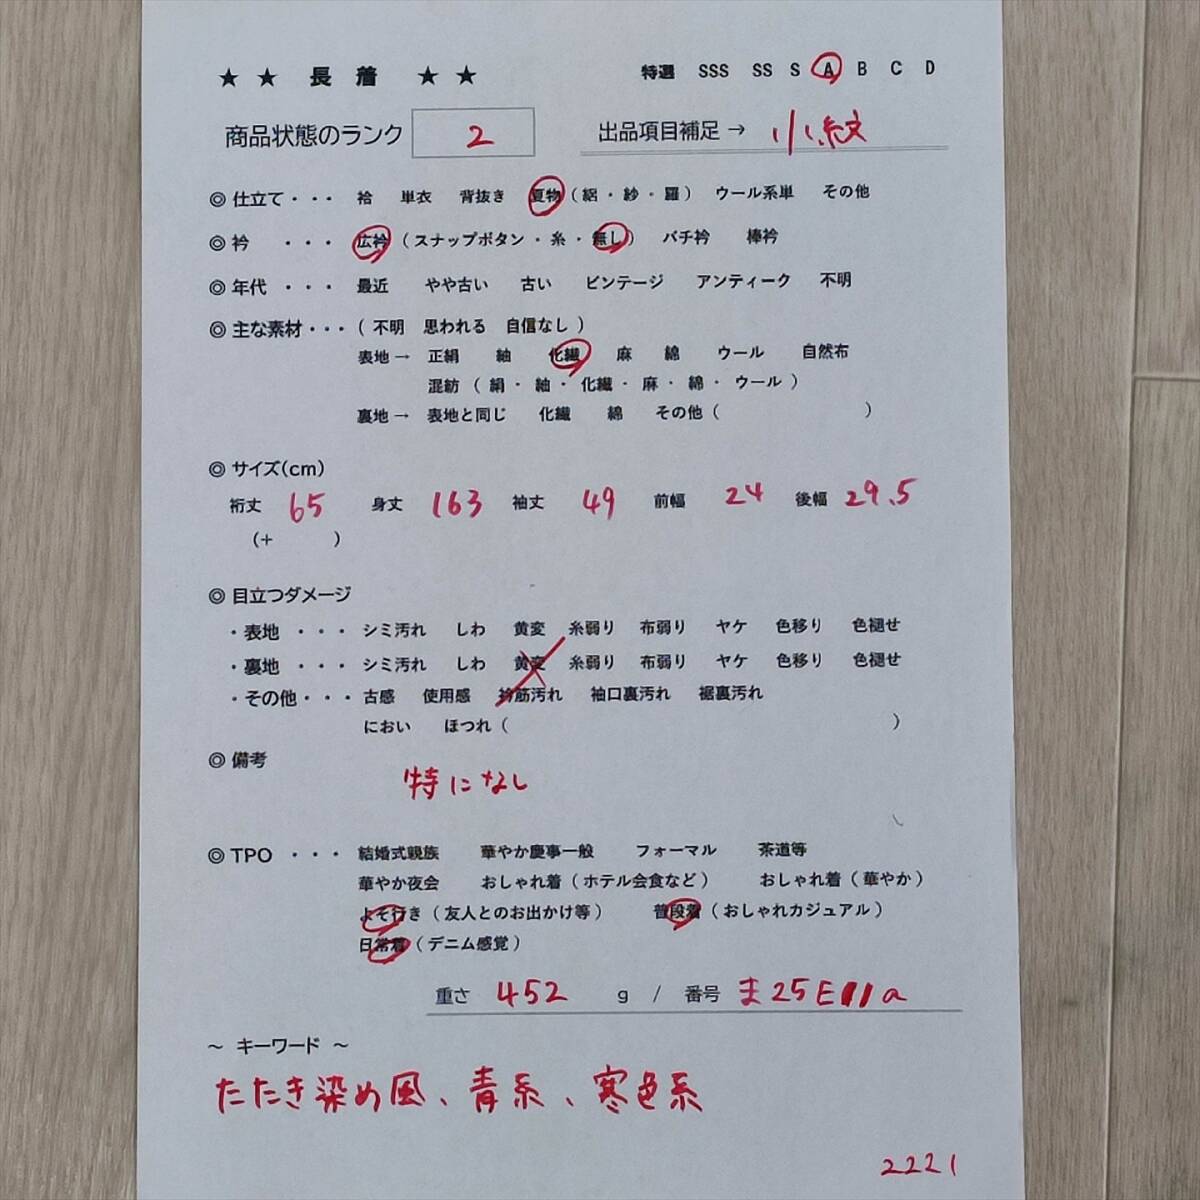 ★ ★ 長 着 ★ ★ 特選 SSS SS S A B C D
商品状態のランク 2 出品項目補足→ 小紋
◎ 仕立て・・・ 袷 単衣 背抜き 夏物(絽・紗・羅) ウール系単 その他
◎ 衿 ・・・ 広衿(スナップボタン・糸・無し) バチ衿 棒衿
◎ 年代 ・・・ 最近 やや古い 古い ビンテージ アンティーク 不明
◎ 主な素材・・・(不明 思われる 自信なし)
表地→ 正絹 紬 化繊 麻 綿 ウール 自然布
混紡(絹・紬・化繊・麻・綿・ウール)
裏地→ 表地と同じ 化繊 綿 その他( )
◎ サイズ(cm)
裄丈 65 身丈 163 袖丈 49 前幅 24 後幅 29.5
(+ )
◎ 目立つダメージ
・表地 ・・・ シミ汚れ しわ 黄変 糸弱り 布弱り ヤケ 色移り 色褪せ
・裏地 ・・・ シミ汚れ しわ 黄変 糸弱り 布弱り ヤケ 色移り 色褪せ
・その他・・・ 古感 使用感 衿筋汚れ 袖口裏汚れ 裾裏汚れ
におい ほつれ( )
◎ 備考
特になし
◎ TPO ・・・ 結婚式親族 華やか慶事一般 フォーマル 茶道等
華やか夜会 おしゃれ着(ホテル会食など) おしゃれ着(華やか)
よそ行き(友人とのお出かけ等) 普段着(おしゃれカジュアル)
日常着(デニム感覚)
重さ 452 g / 番号 ま25E11a
～ キーワード ～
たたき染め風、青系、寒色系
2221